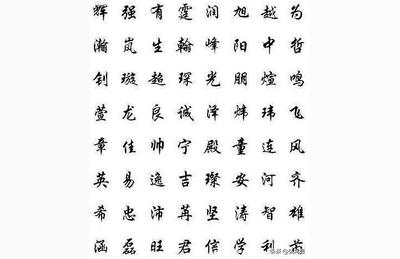 辉 强 有 霆 润 旭 越 为
瀚 岚 生 翰 峰 阳 中 哲
钊 璇 超 琛 光 朋 煊 鸣
萱 龙 良 诚 泽 炜 玮 飞
章 佳 帅 宁 殿 童 连 风
英 易 逸 吉 璨 安 河 齐
希 忠 沛 苒 坚 涛 智 雄
涵 磊 旺 君 信 学 利